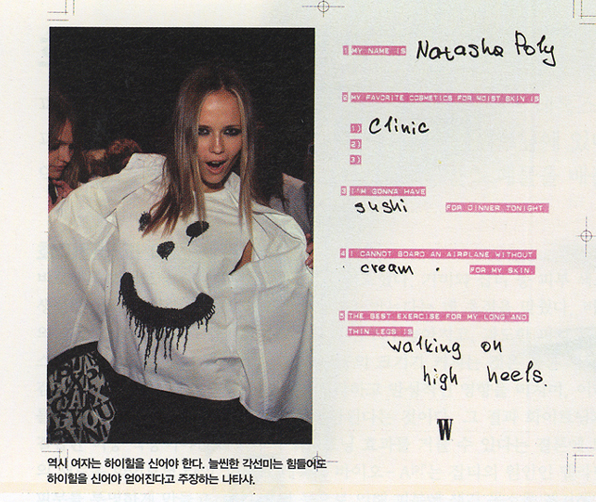 1 MY NAME IS Natasha Poly
2 MY FAVORITE COSMETICS FOR MOIST SKIN IS
1) Clinic
2)
3)
3 I'M GONNA HAVE
sushi FOR DINNER TONIGHT.
4 I CANNOT BOARD AN AIRPLANE WITHOUT
cream . FOR MY SKIN.
5 THE BEST EXERCISE FOR MY LONG AND
THIN LEGS IS
walking on
high heels.
W
역시 여자는 하이힐을 신어야 한다. 늘씬한 각선미는 힘들어도
하이힐을 신어야 얻어진다고 주장하는 나타샤.